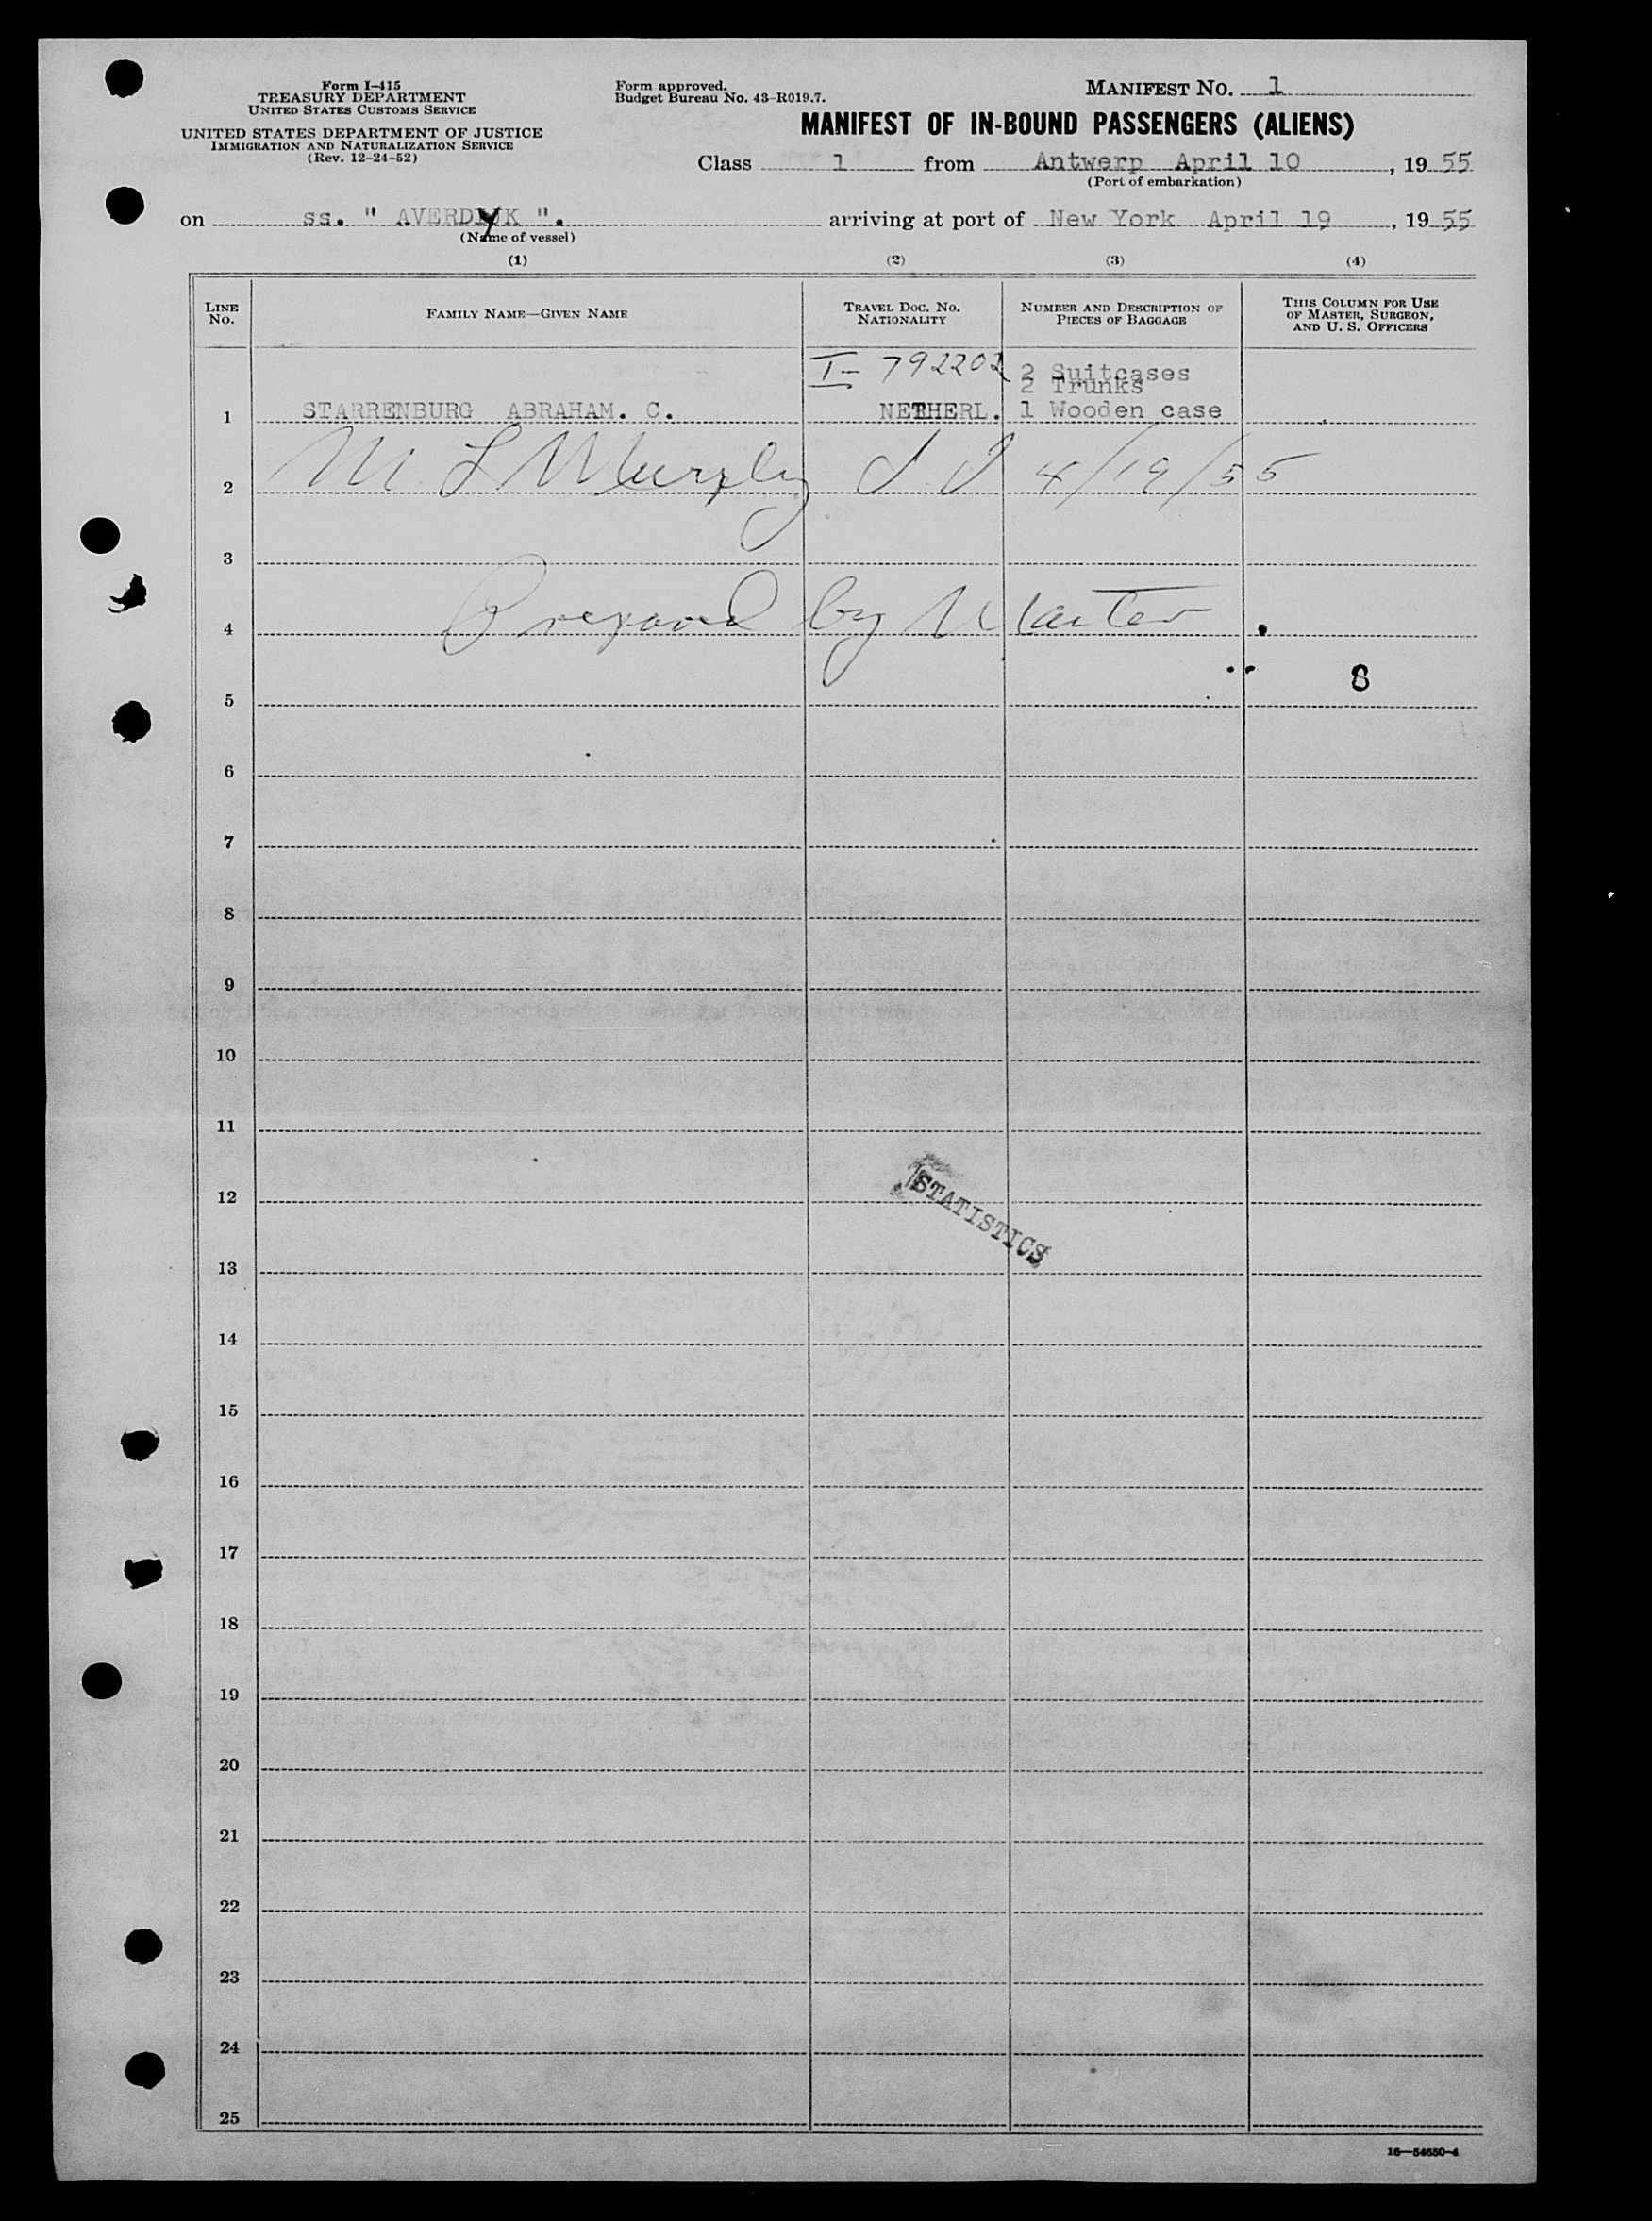 Form I-415
TREASURY DEPARTMENT
UNITED STATES CUSTOMS SERVICE
UNITED STATES DEPARTMENT OF JUSTICE
IMMIGRATION AND NATURALIZATION SERVICE
(Rev. 12-24-52)
Form approved.
Budget Bureau No. 43-R019.7.
MANIFEST NO. 1
MANIFEST OF IN-BOUND PASSENGERS (ALIENS)
Class 1 from Antwerp April 10, 19 55
(Port of embarkation)
on ss. " AVERDYK ". arriving at port of New York April 19, 19 55
(Name of vessel)
(1) (2) (3) (4)
LINE NO.
FAMILY NAME—GIVEN NAME
TRAVEL DOC. NO. NATIONALITY
NUMBER AND DESCRIPTION OF PIECES OF BAGGAGE
THIS COLUMN FOR USE OF MASTER, SURGEON, AND U. S. OFFICERS
I- 792202 2 Suitcases
2 Trunks
1 STARRENBURG ABRAHAM. C. NETHERL. 1 Wooden case
2 M L Murphy 4/19/55
3
4 Prepared by Master
8
5
6
7
8
9
10
11
12
STATISTICS
13
14
15
16
17
18
19
20
21
22
23
24
25
16—54650-4